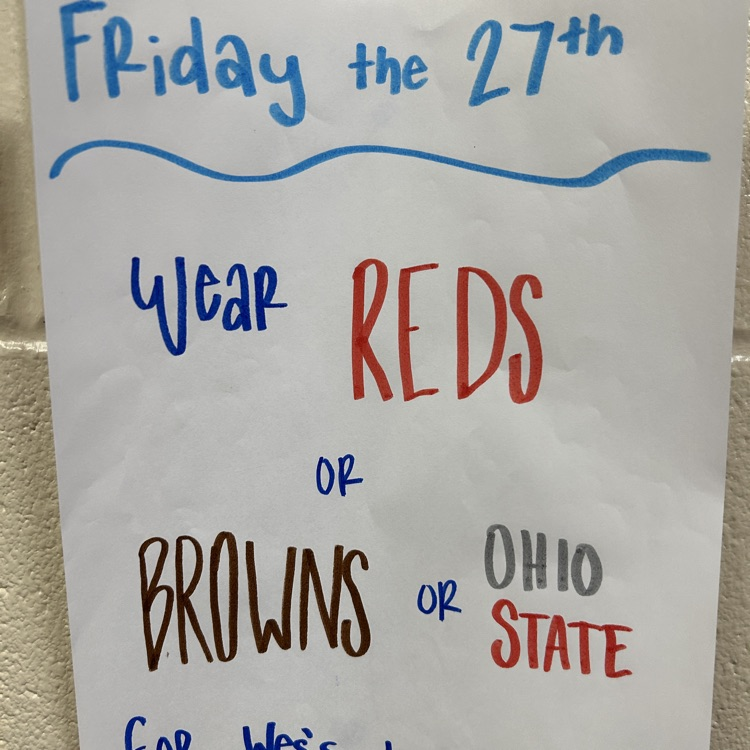 Friday the 27th
Wear REDS
OR
BROWNS OR OHIO STATE
FOR Wes's